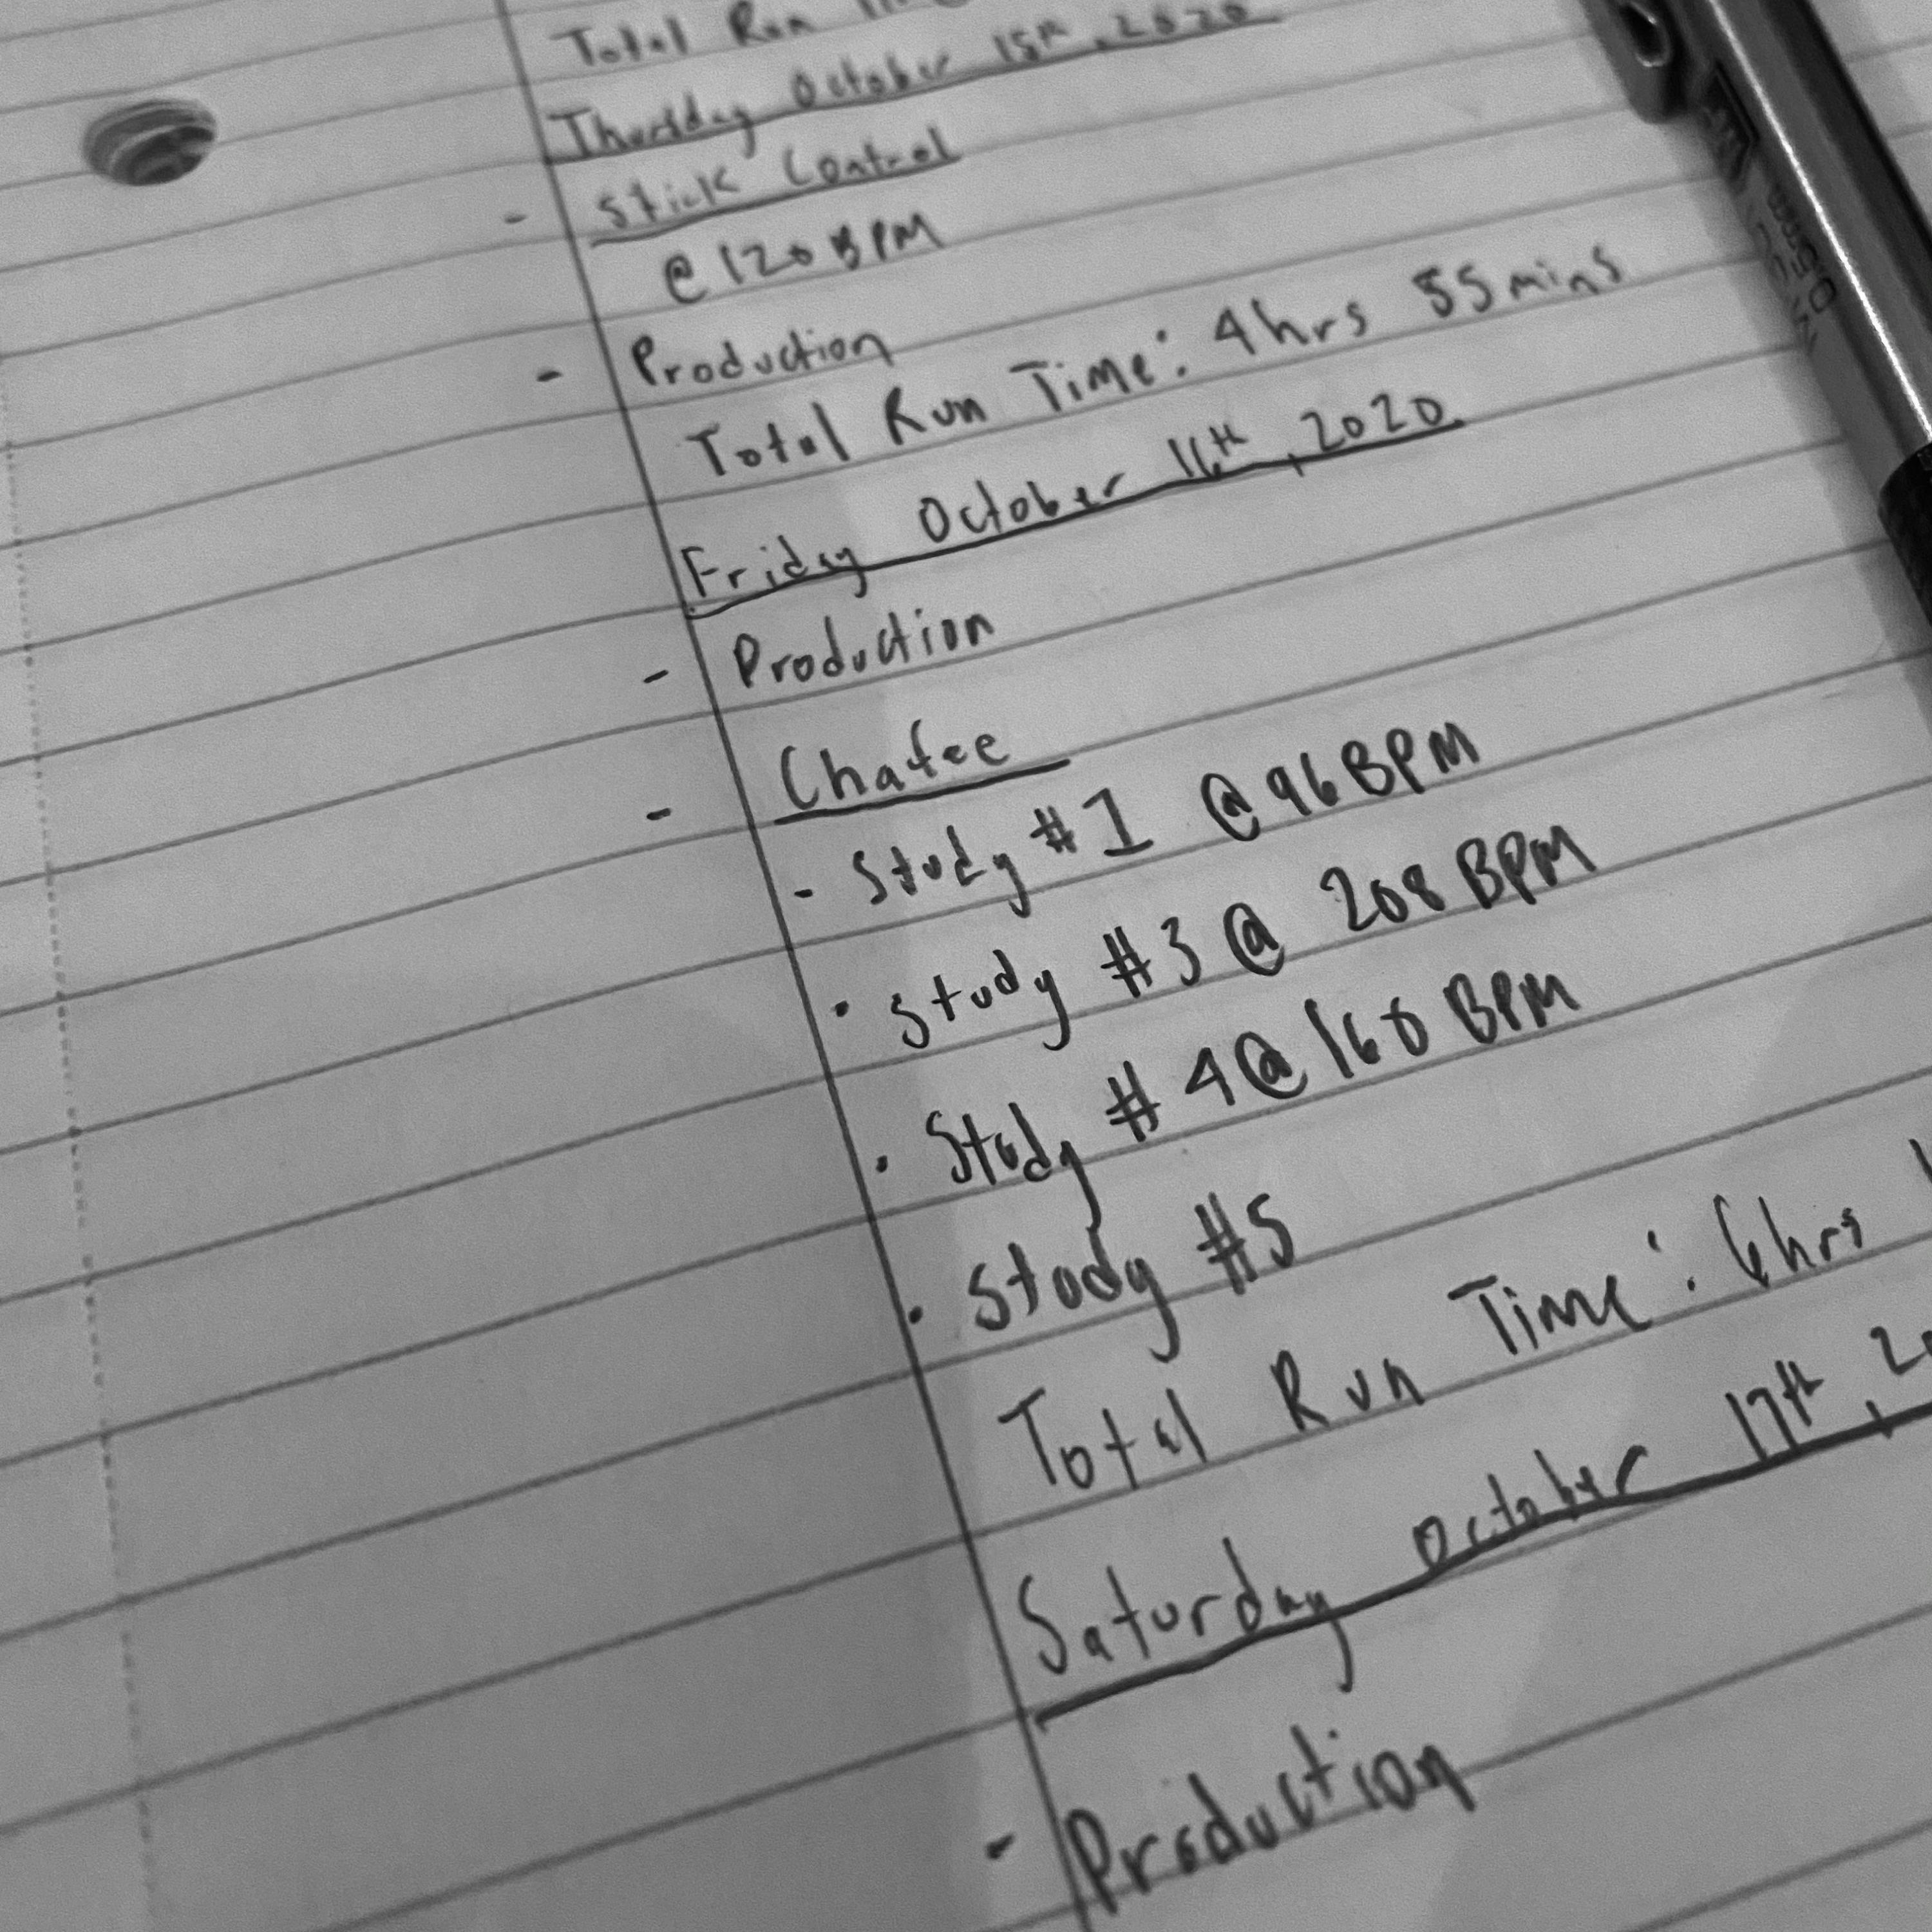 Total Run
Thursday October 15th, 2020
- Stick Control
@ 120 BPM
- Production
Total Run Time: 4hrs 55mins
Friday October 16th, 2020
- Production
- Chafee
- Study #1 @ 96 BPM
• Study #3 @ 208 BPM
• Study #4 @ 160 BPM
• Study #5
Total Run Time: 6hrs
Saturday October 17th, 20
- Production
0.5mm